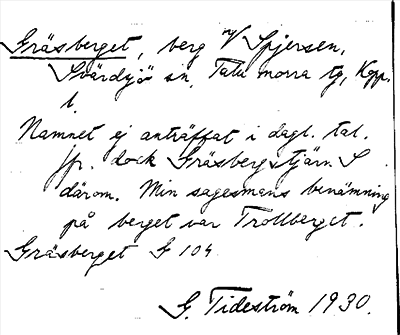 Gräsberget, berg nv Spjersen,
Svärdsjö sn, Falu norra tg, Kopp.
l.
Namnet ej anträffat i dagl. tal.
Jfr. dock Gräsbergstjärn S
därom. Min sagesmans benämning
på berget var Trollberget.
Gräsberget G 104
G. Tideström 1930.